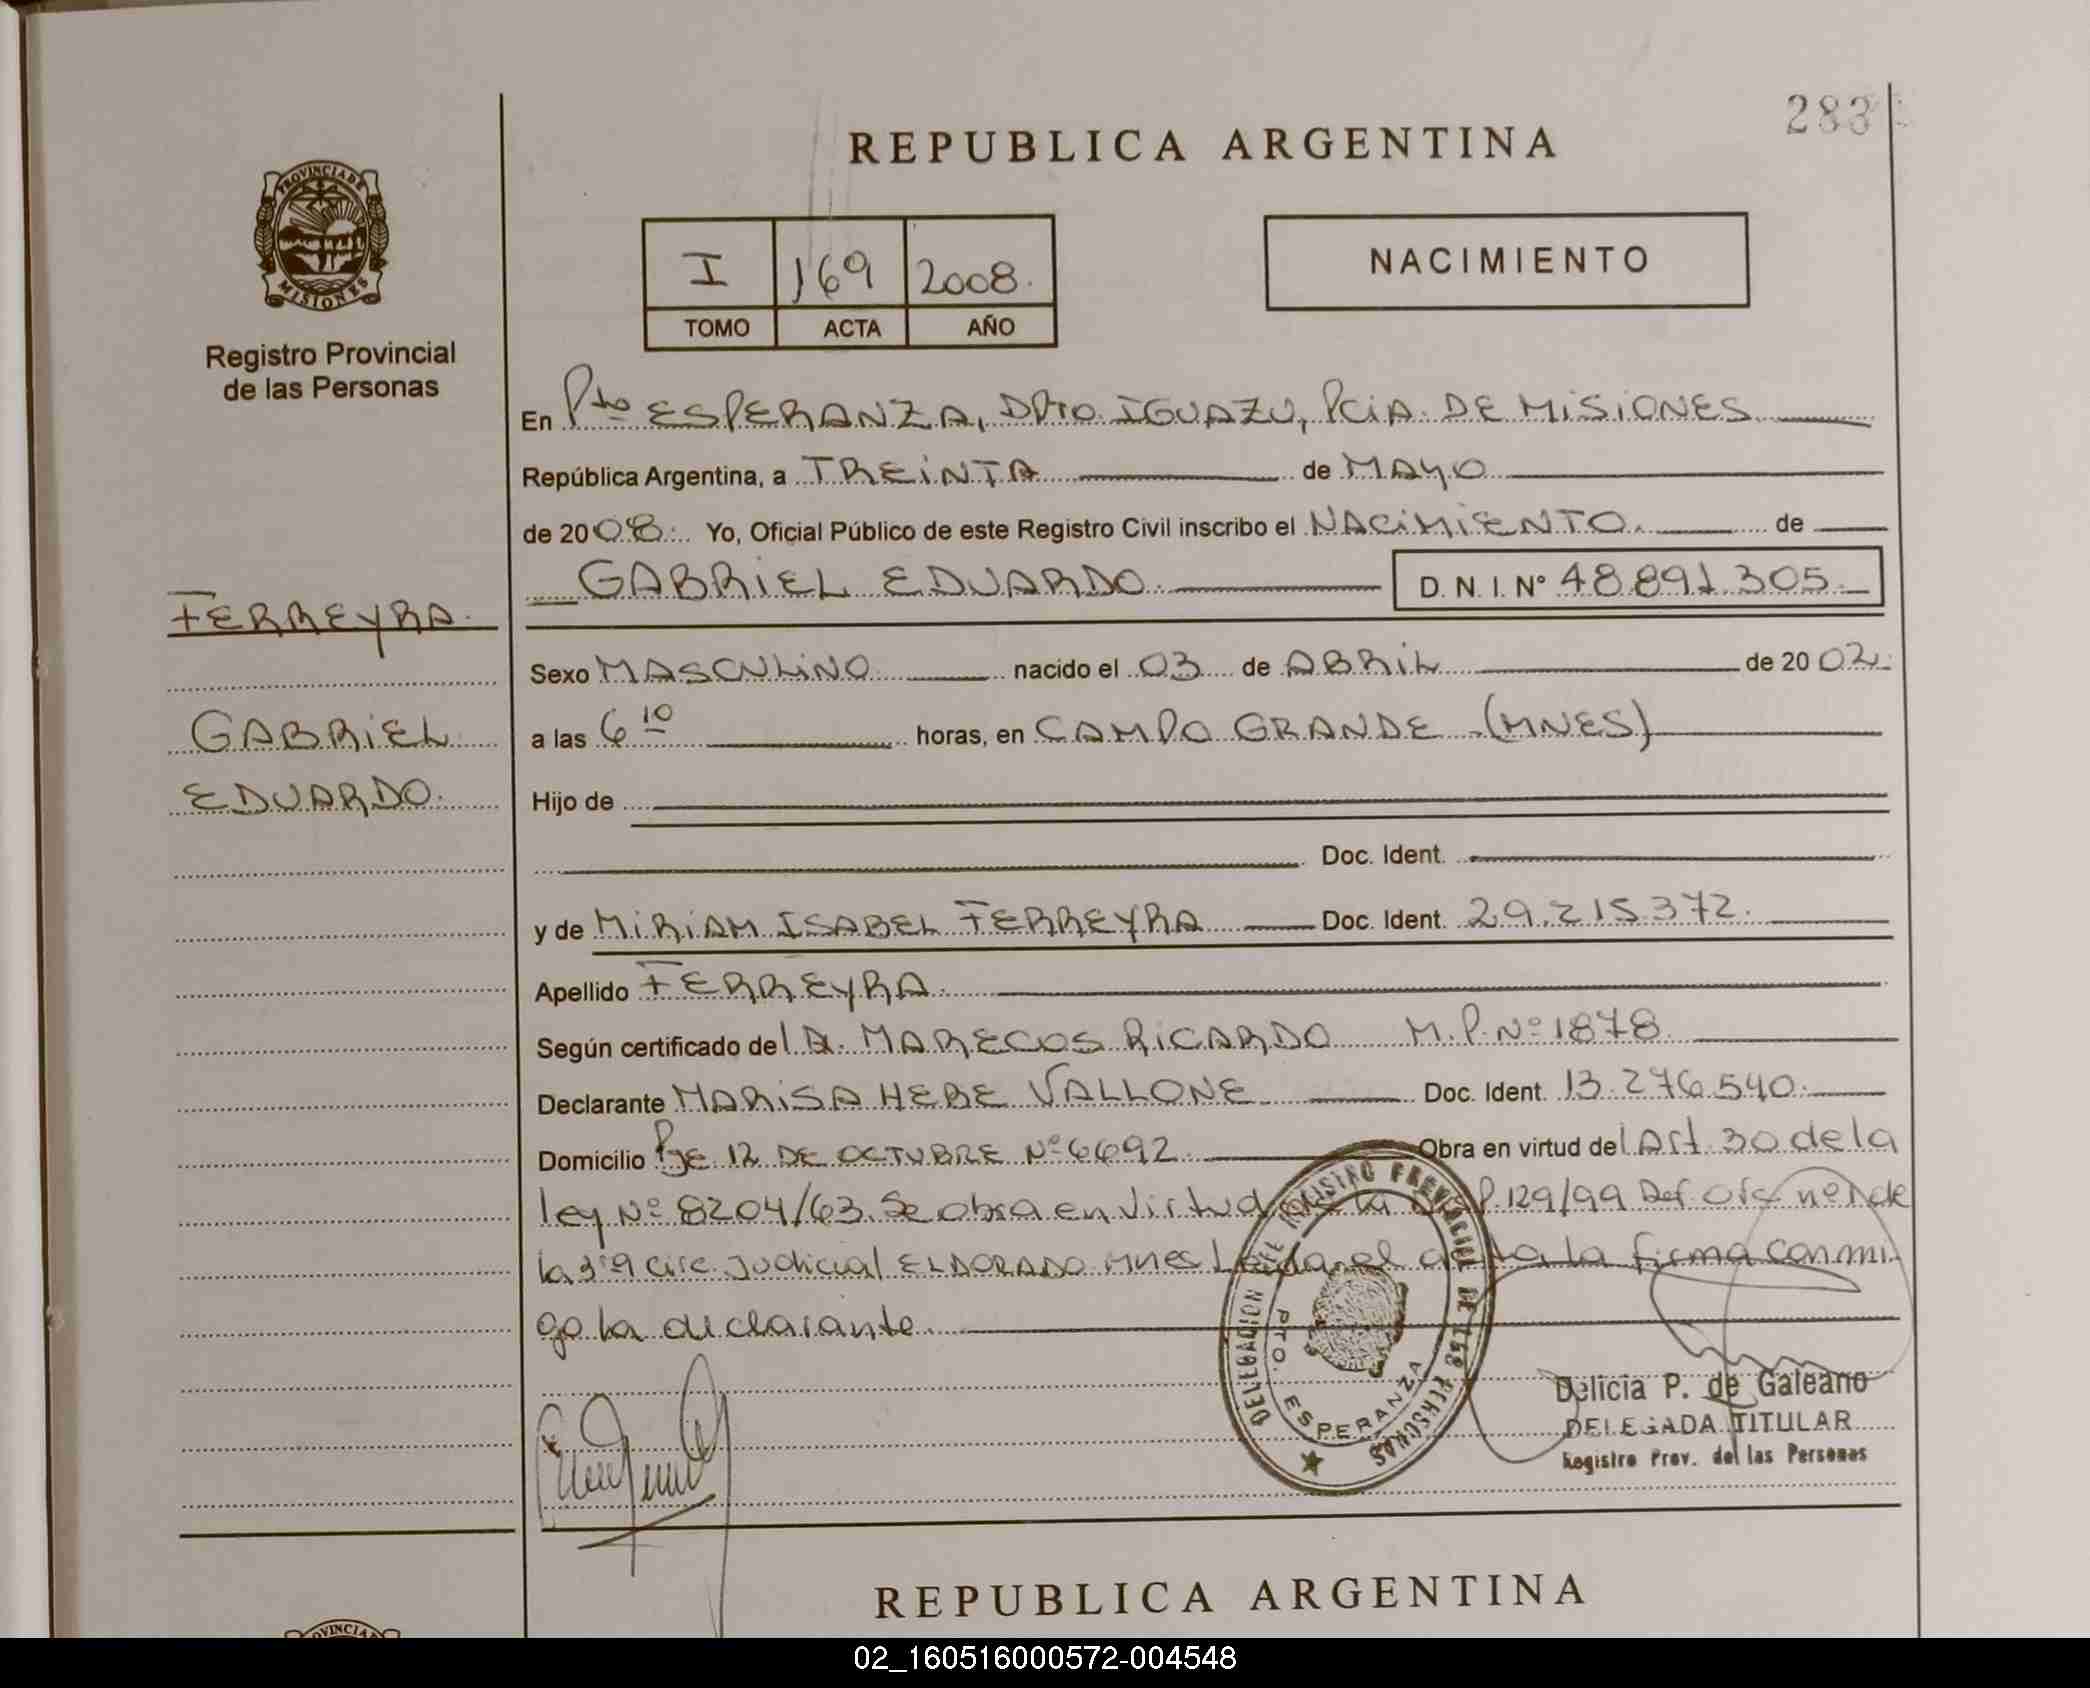 283
REPUBLICA ARGENTINA
PROVINCIA DE
MISIONES
Registro Provincial
de las Personas
I 169 2008.
TOMO ACTA AÑO
NACIMIENTO
En Pto ESPERANZA, DPTO. IGUAZU, PCIA. DE MISIONES
República Argentina, a TREINTA de MAYO
de 2008. Yo, Oficial Público de este Registro Civil inscribo el NACIMIENTO. de
GABRIEL EDUARDO. D. N. I. N° 48.891.305.
FERREYRA.
GABRIEL
EDUARDO.
Sexo MASCULINO nacido el 03 de ABRIL de 2002.
a las 6 10 horas, en CAMPO GRANDE - (MNES)
Hijo de
Doc. Ident.
y de MIRIAM ISABEL FERREYRA Doc. Ident. 29.215.372.
Apellido FERREYRA.
Según certificado del DR. MARECOS RICARDO M.P. Nº 1878
Declarante MARISA HEBE VALLONE Doc. Ident. 13.276.540.
Domicilio Pje 12 DE OCTUBRE Nº 6692 Obra en virtud del Art. 30 de la
ley Nº 8204/63. Se obra en virtud de la 129/99 Def. Ofc. nº 1 de
la 3ra circ. Judicial ELDORADO Mnes Leida el acta la firma conmi-
go la declarante.
DELEGACION DEL REGISTRO PROVINCIAL DE LAS PERSONAS
PTO. ESPERANZA
Delicia P. de Galeano
DELEGADA TITULAR
Registro Prov. de las Personas
REPUBLICA ARGENTINA
02_160516000572-004548